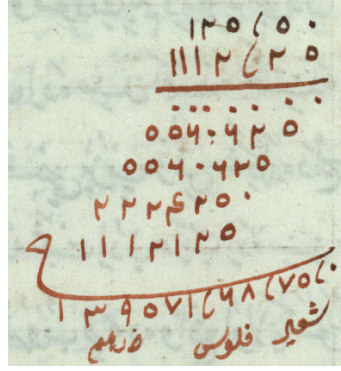 ١٢٥/٥٠
١١١٢/٢٥
٠٠٠٠٠٠٠
٥٥٦٠٦٢٥
٥٥٦٠٦٢٥
٢٢٢٤٢٥٠
١١١٢١٢٥
١٣٩٥٧١/٦٨/٧٥/٠
شعير فلوس دراهم